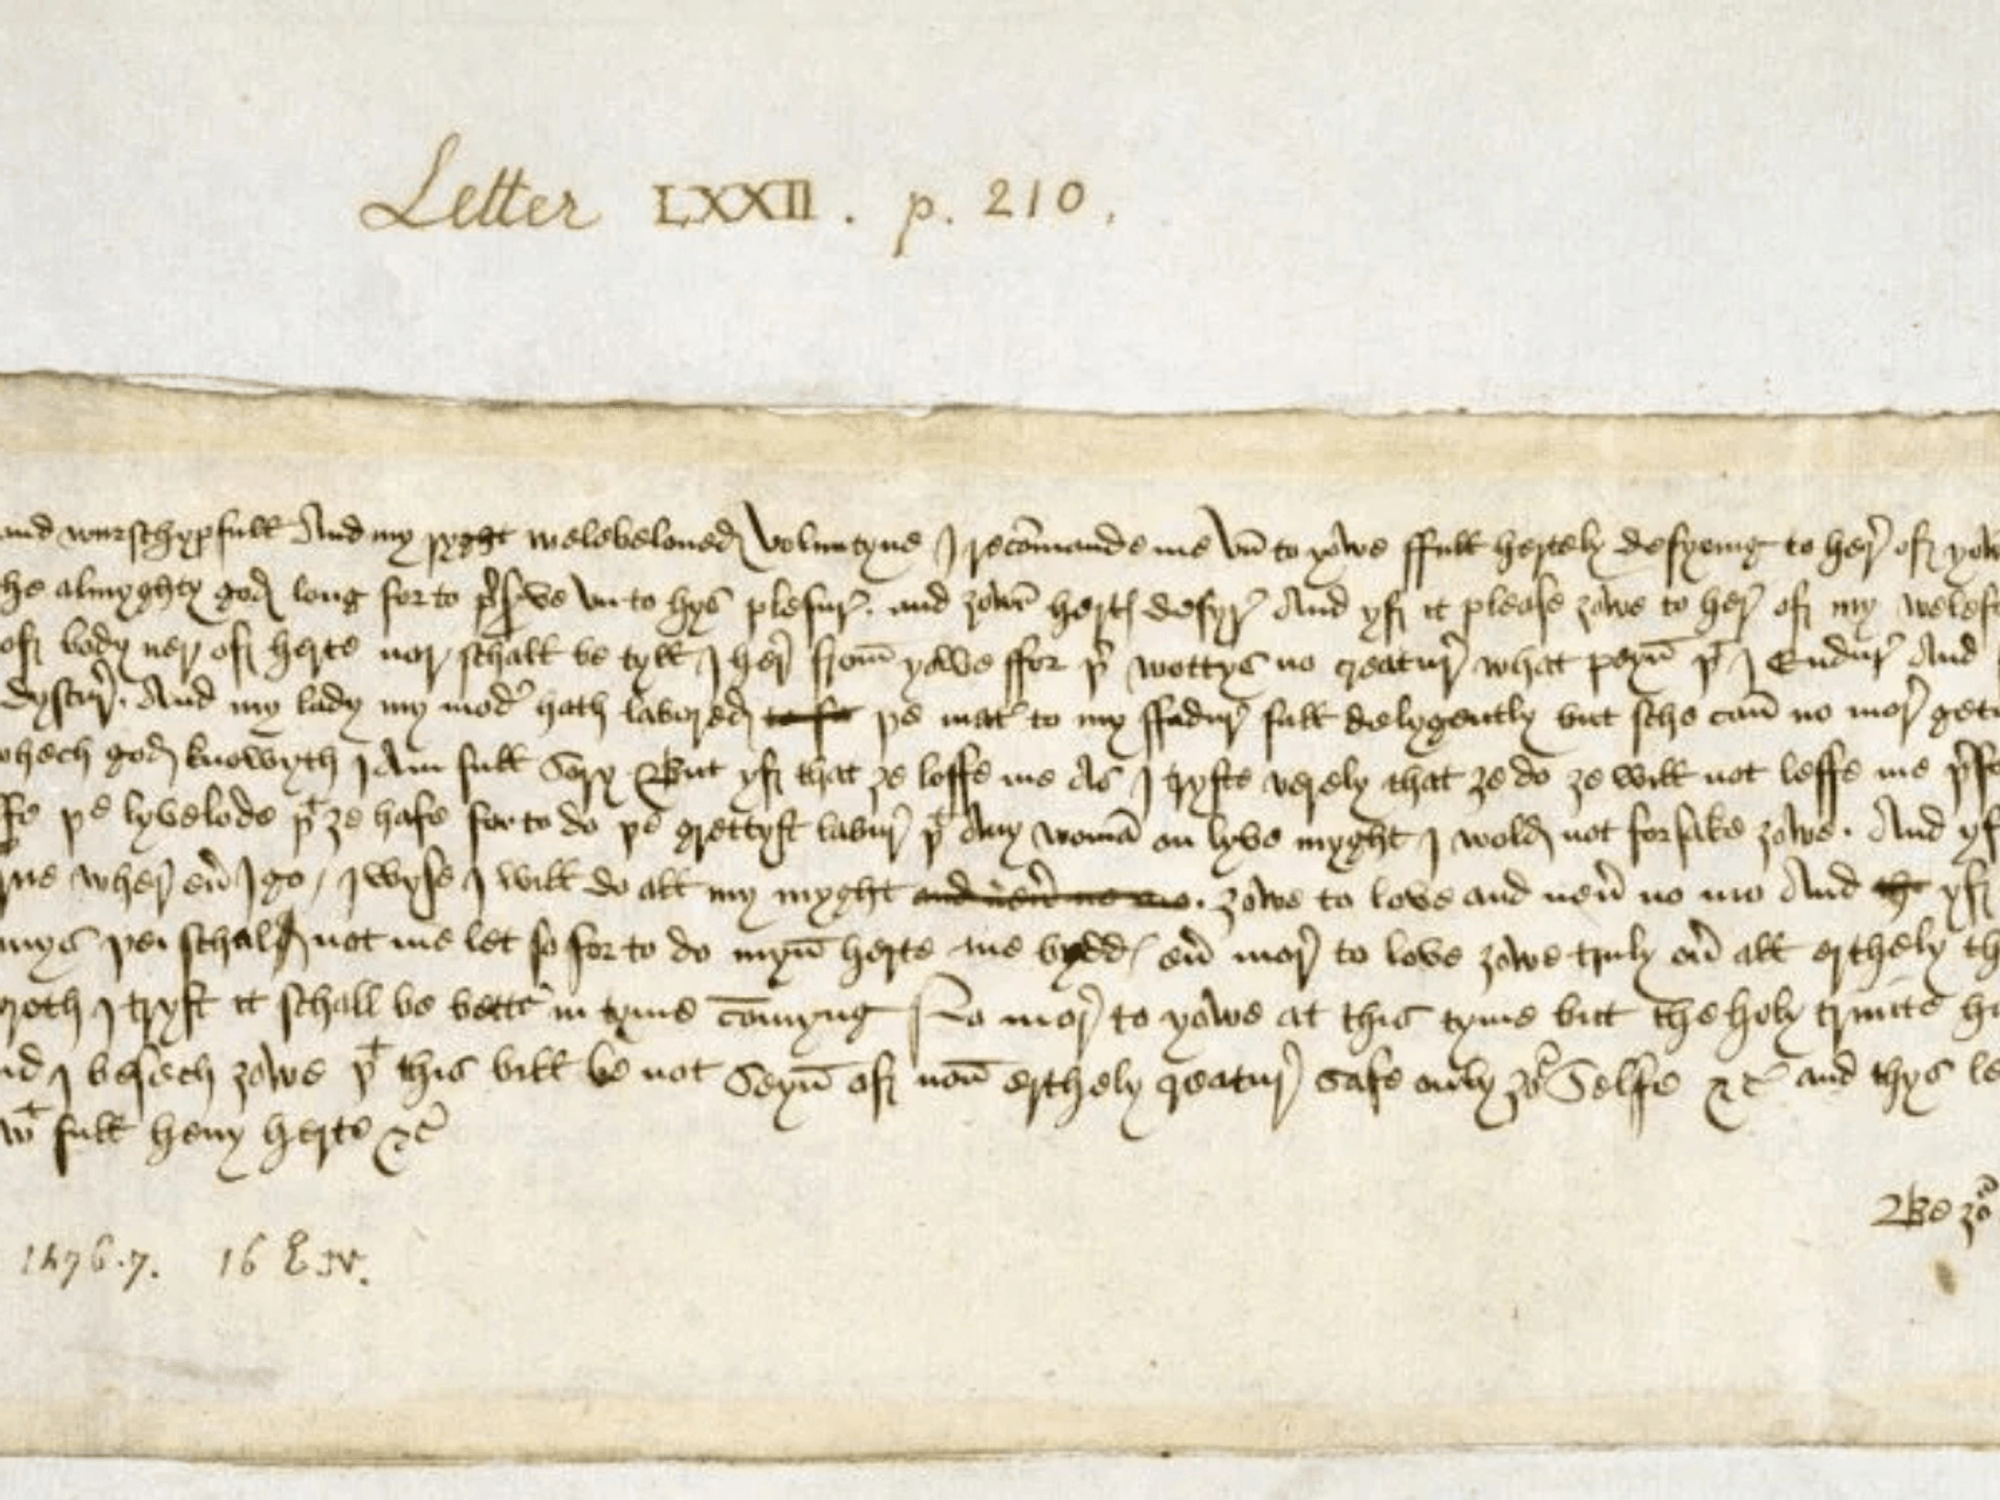 Letter LXXII. p. 210.
and wurschypfull And my ryght welebeloued Voluntyne I recōmande me vn to yowe ffull hertely desyring to her̃ off yow
he almyghty god long for to p̃sˀve vn to hys plesur̃. and zowr̃ hert desyr̃ And yff it please zowe to her̃ off my welef
off body ner off herte nor schall be tyll I her̃ from̄ yowe ffor þr wottys no creatur̃ what peyn̄ þt I Endur̃ And
dyscur̃. And my lady my modr̃ hath labored to fo þe matr̃ to my ffadur̃ full delygently but sche can̄ no mor̃ gete
whech god knowyth I Am full Sory But yff that ze loffe me As I tryste verely that ze do ze will not leffe me þrfo
þe lyvelode þt ze hafe for to do þe grettyst labur̃ þt Any womā on lyve myght I wold not forsake zowe. And yff
me wher̃ eũ I go / I wyse I will do all my myght and neũ no mo. zowe to love and neũ no mo And the yff
þei schal not me let so for to do myn̄ herte me bydds eũ mor̃ to love zowe truly oũ all erthely th
wroth I tryst it schall be bettr̃ in tyme cōmyng No mor̃ to yowe at this tyme but the holy trinite h
nd I besech zowe þt this bill be not Seyn̄ off non̄ erthely creatur̃ safe only zor̃ Selffe &c̃ and thys le
wt full heuy herte &c̃
Be zor̃
1476.7. 16 E. IV.